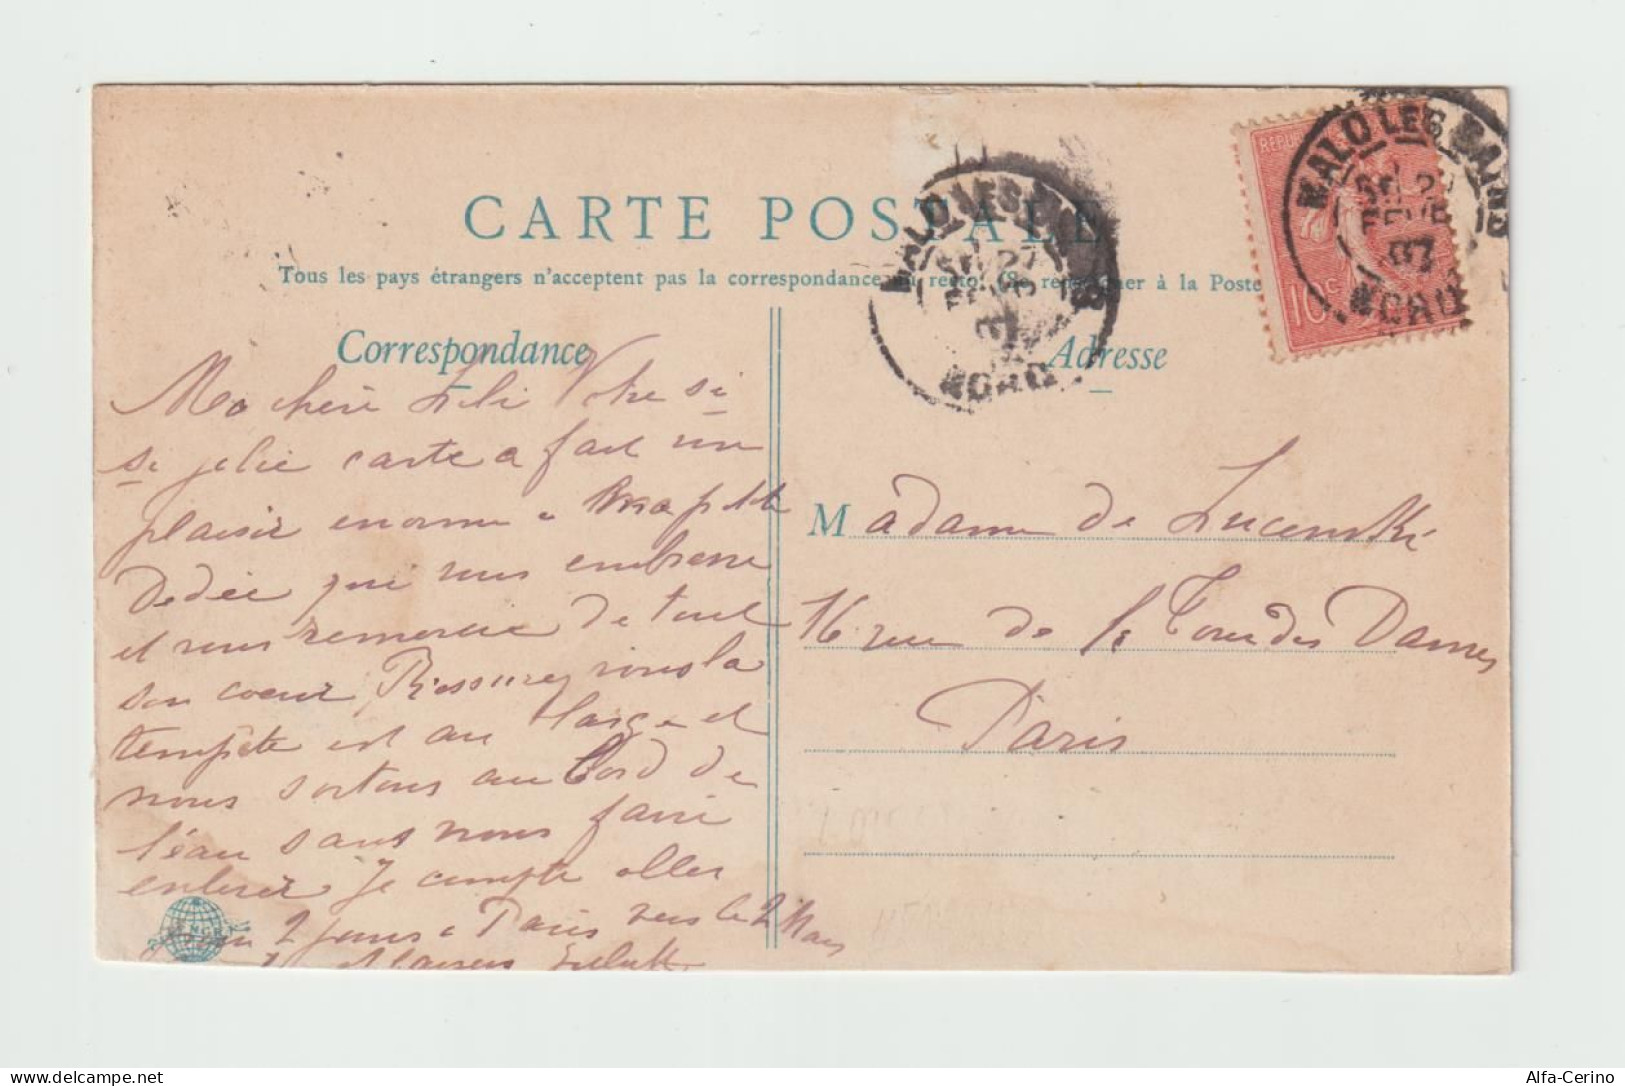 CARTE POSTALE
Tous les pays étrangers n'acceptent pas la correspondance au recto. (Se renseigner à la Poste
Correspondance
Adresse
MALO LES BAINS
NORD
MALO LES BAINS
FEVR
07
NORD
10c
Ma chère Lili Votre si
si jolie carte a fait un
plaisir enorme a ma petite
Dedée qui vous embrasse
et vous remercie de tout
son coeur Rassurez vous la
tempête est au large et
nous sortons au bord de
l'eau sans nous faire
enlever Je compte aller
2 jours a Paris vers le 2 Mars
Madame de
16 rue de la Tour des Dames
Paris
Alfa-Cerino